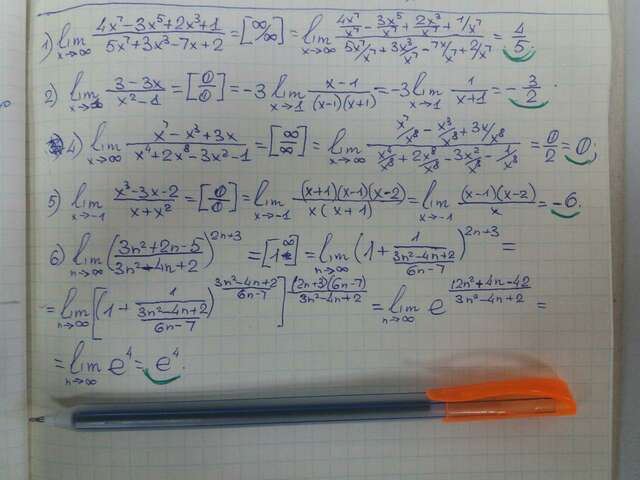 1) lim x→∞ (4x⁷−3x⁵+2x³+1)/(5x⁷+3x³−7x+2) = [∞/∞] = lim x→∞ (4x⁷/x⁷ − 3x⁵/x⁷ + 2x³/x⁷ + 1/x⁷)/(5x⁷/x⁷ + 3x³/x⁷ − 7x/x⁷ + 2/x⁷) = 4/5.
2) lim x→1 (3−3x)/(x²−1) = [0/0] = −3 lim x→1 (x−1)/((x−1)(x+1)) = −3 lim x→1 1/(x+1) = −3/2.
4) lim x→∞ (x⁷−x³+3x)/(x⁴+2x⁸−3x²−1) = [∞/∞] = lim x→∞ (x⁷/x⁸ − x³/x⁸ + 3x/x⁸)/(x⁴/x⁸ + 2x⁸/x⁸ − 3x²/x⁸ − 1/x⁸) = 0/2 = 0;
5) lim x→−1 (x³−3x−2)/(x+x²) = [0/0] = lim x→−1 ((x+1)(x−1)(x−2))/(x(x+1)) = lim x→−1 ((x−1)(x−2))/x = −6.
6) lim n→∞ ((3n²+2n−5)/(3n²−4n+2))²ⁿ⁺³ = [1^∞] = lim n→∞ (1 + 1/((3n²−4n+2)/(6n−7)))²ⁿ⁺³ =
= lim n→∞ [(1 + 1/((3n²−4n+2)/(6n−7)))^((3n²−4n+2)/(6n−7))]^(((2n+3)(6n−7))/(3n²−4n+2)) = lim n→∞ e^((12n²+4n−42)/(3n²−4n+2)) =
= lim n→∞ e⁴ = e⁴.